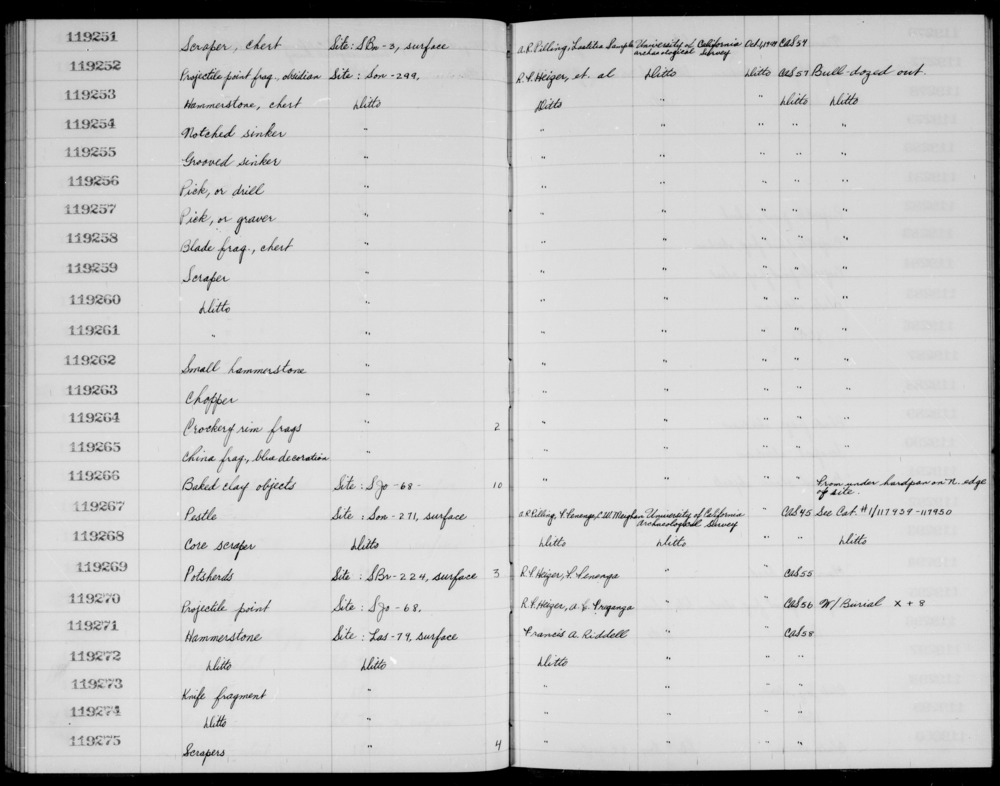 119251 Scraper, chert Site: SBa-3, surface A.R. Pilling; Laetitia Sample University of California Archaeological Survey Oct 1, 1949 CAS 59
119252 Projectile point frag., obsidian Site: Son-299, R.F. Heizer, et. al Ditto Ditto CAS 57 Bull-dozed out.
119253 Hammerstone, chert Ditto Ditto " " Ditto Ditto
119254 Notched sinker " " " " " "
119255 Grooved sinker " " " " " "
119256 Pick, or drill " " " " " "
119257 Pick, or graver " " " " " "
119258 Blade frag., chert " " " " " "
119259 Scraper " " " " " "
119260 Ditto " " " " " "
119261 " " " " " " "
119262 Small hammerstone " " " " " "
119263 Chopper " " " " " "
119264 Crockery rim frags " 2 " " " " "
119265 China frag., blue decoration " " " " " "
119266 Baked clay objects Site: SJo-68- 10 " " " " From under hardpan on N. edge of site.
119267 Pestle Site: Son-271, surface A.R. Pilling, F. Fenenga, C.W. Meighan University of California Archaeological Survey " CAS 45 See Cat. #1/117939-117950
119268 Core scraper Ditto Ditto Ditto " " Ditto
119269 Potsherds Site: SBr-224, surface 3 R.F. Heizer, F. Fenenga " " CAS 55
119270 Projectile point Site: SJo-68, R.F. Heizer, " " CAS 56 W/ Burial X + 8
119271 Hammerstone Site: Las-79, surface Francis A. Riddell " " CAS 58
119272 Ditto Ditto Ditto " " "
119273 Knife fragment " " " " "
119274 Ditto " " " " "
119275 Scrapers " 4 " " " "